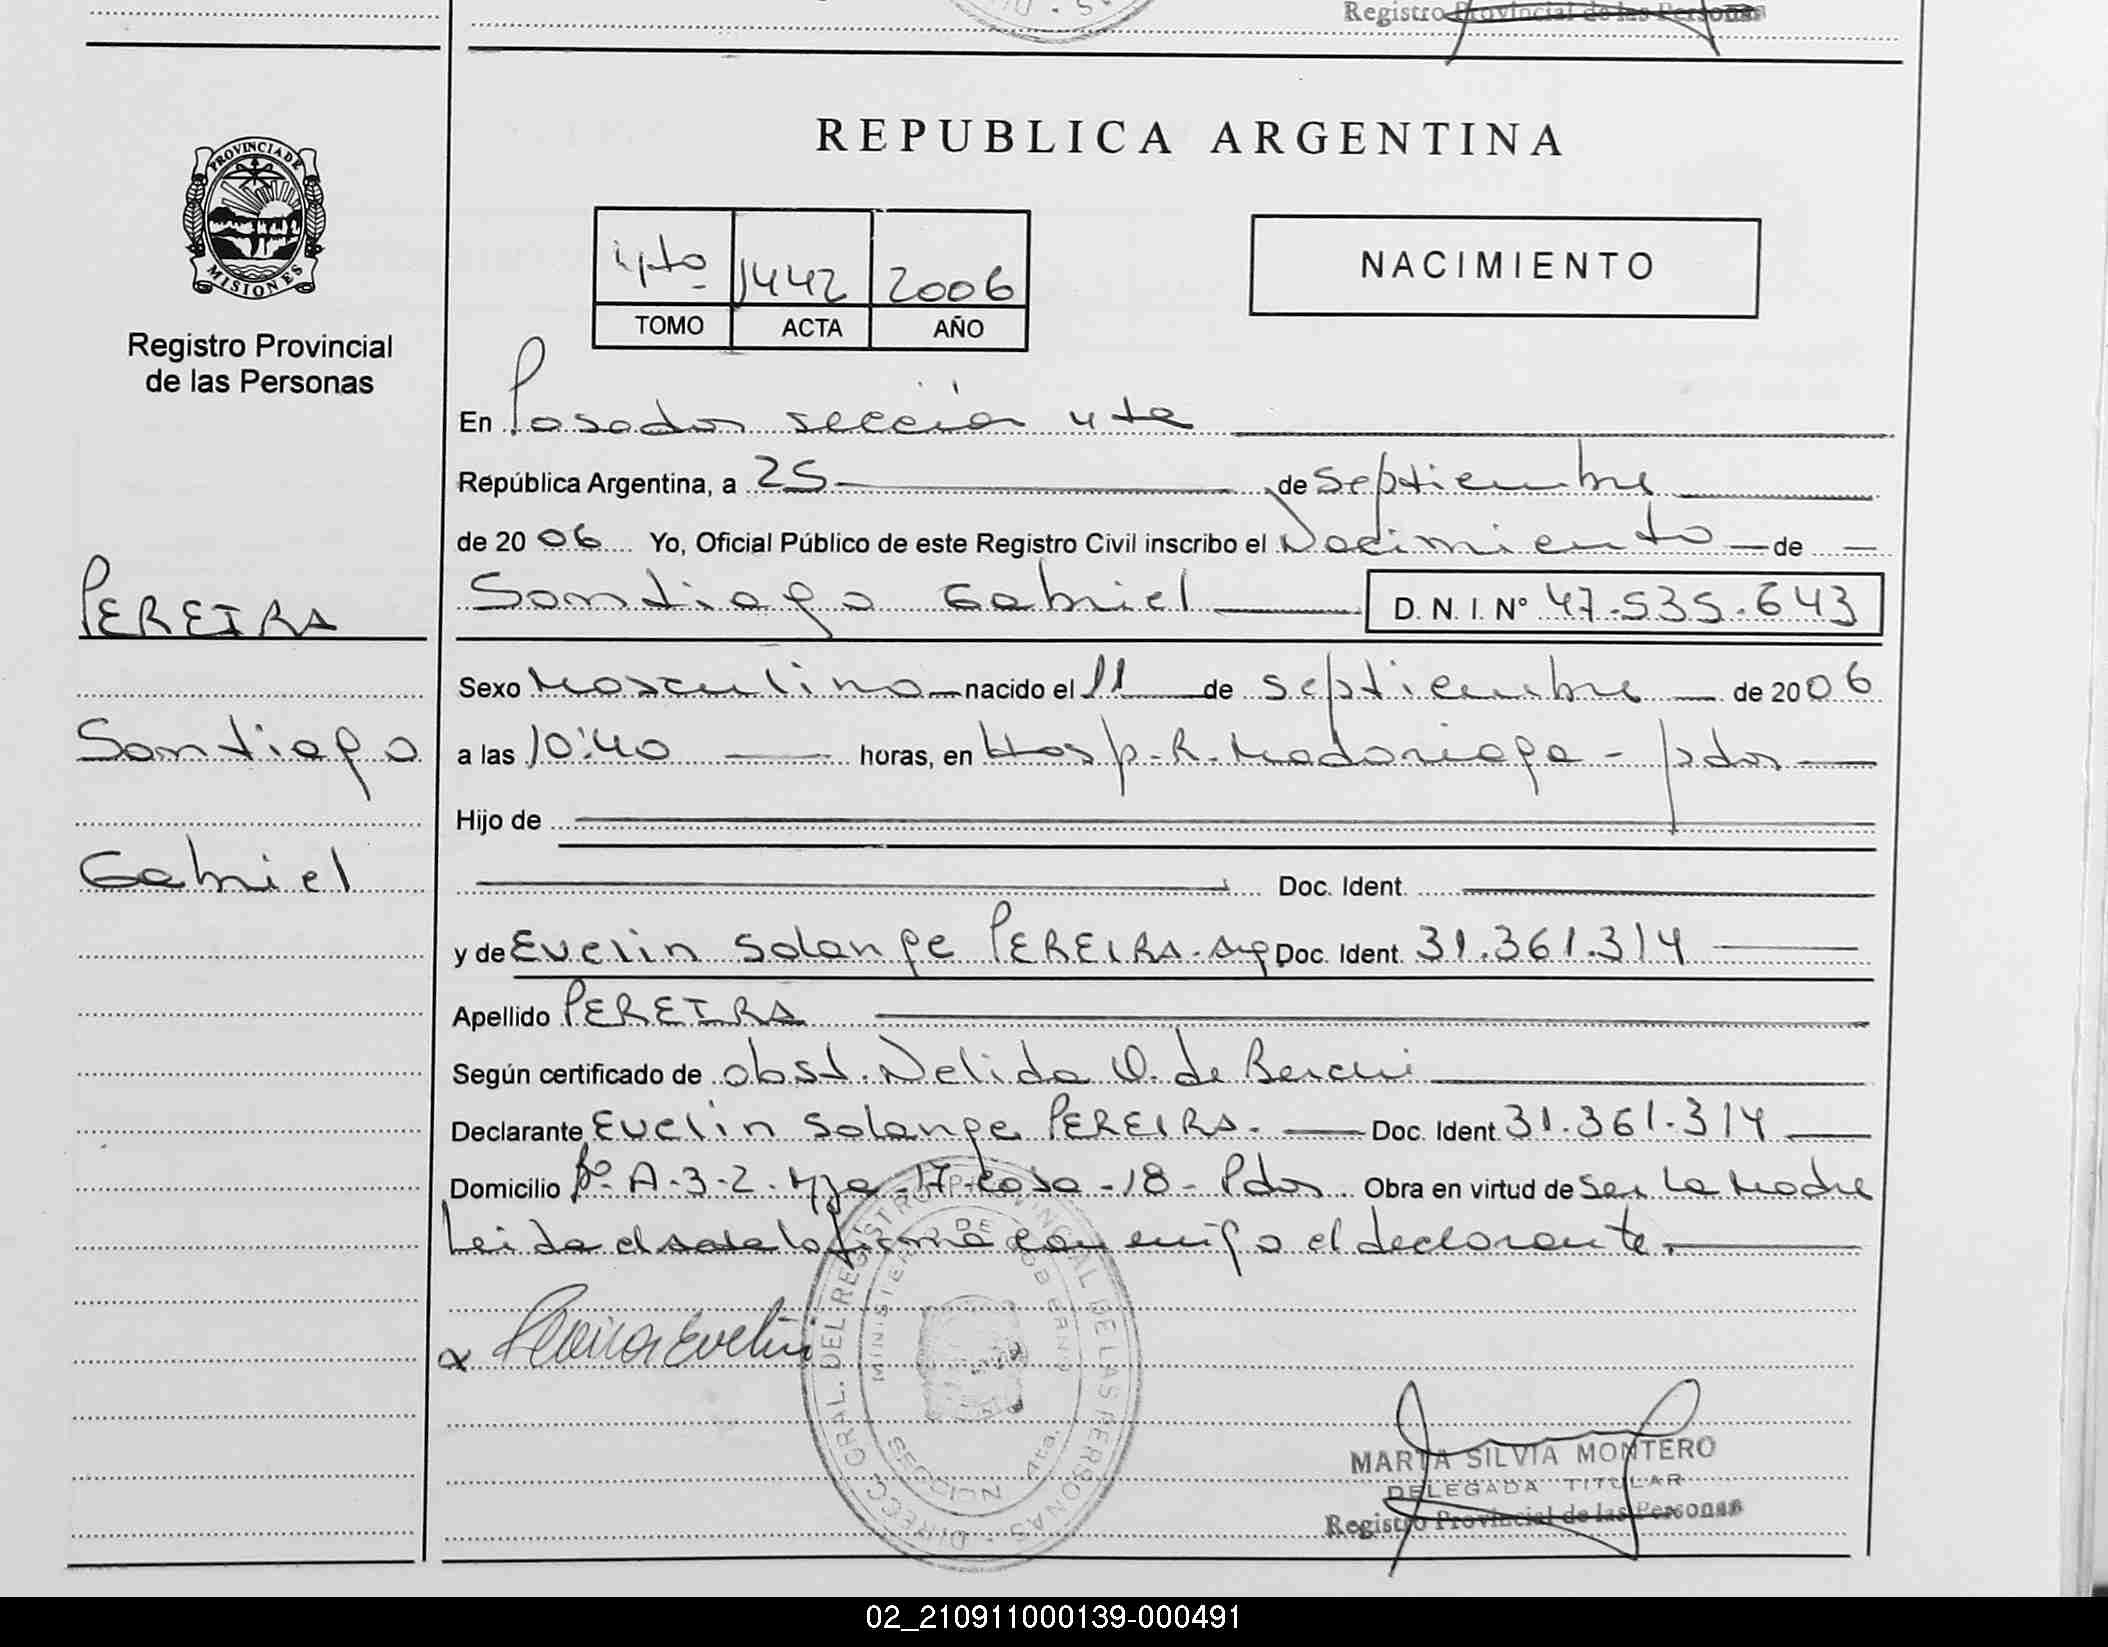 Registro Provincial de las Personas
PROVINCIA DE
MISIONES
Registro Provincial
de las Personas
PEREIRA
Santiago
Gabriel
REPUBLICA ARGENTINA
4to 1442 2006
TOMO ACTA AÑO
NACIMIENTO
En Posadas sección 4ta
República Argentina, a 25 de septiembre
de 2006 Yo, Oficial Público de este Registro Civil inscribo el Nacimiento de
Santiago Gabriel D. N. I. N° 47.535.643
Sexo Masculino nacido el 11 de septiembre de 2006
a las 10:40 horas, en Hosp. R. Madariaga - pdas
Hijo de
Doc. Ident.
y de Evelin Solange PEREIRA. Arg Doc. Ident. 31.361.314
Apellido PEREIRA
Según certificado de obst. Nelida O. de
Declarante Evelin Solange PEREIRA. Doc. Ident 31.361.314
Domicilio B° A-3-2. Mza 17 casa -18 - Pdas Obra en virtud de ser la Madre
Leida el acta la firma conmigo el declarante.
Pereira Evelin
DIRECC. GRAL. DEL REGISTRO PROVINCIAL DE LAS PERSONAS
MINISTERIO DE GOBIERNO
SECCION 4ta.
MARTA SILVIA MONTERO
DELEGADA TITULAR
Registro Provincial de las Personas
02_210911000139-000491